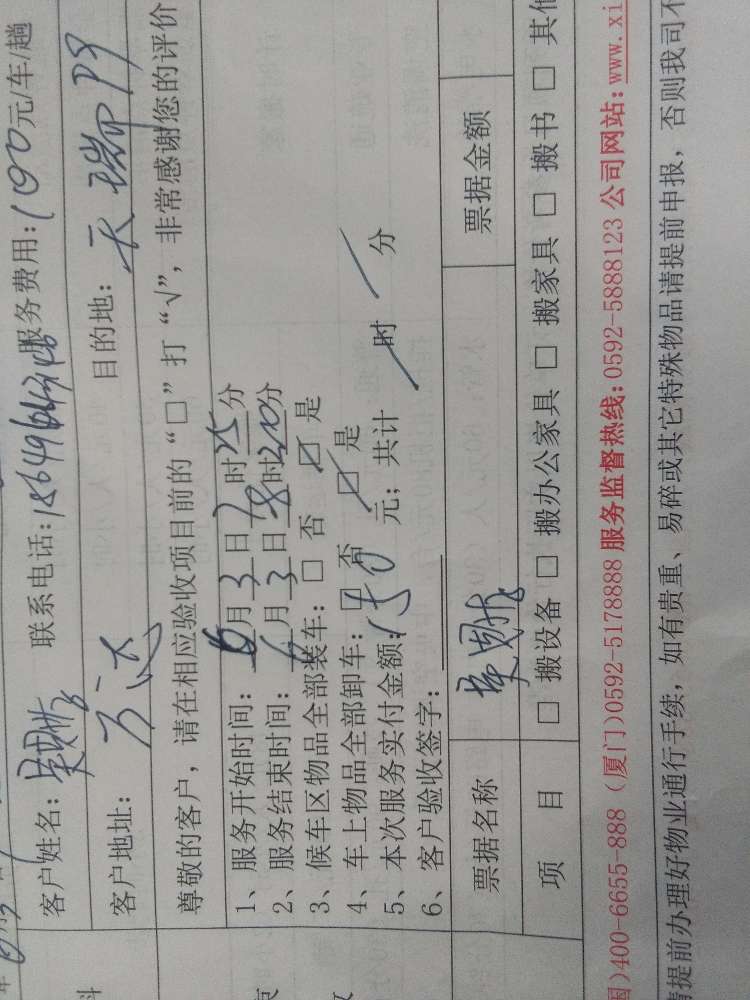 客户姓名: 联系电话: 服务费用:100元/车/趟
客户地址: 万达 目的地: 天瑞99
尊敬的客户，请在相应验收项目前的“□”打“√”，非常感谢您的评价
1、服务开始时间: 6月3日7时25分
2、服务结束时间: 6月3日8时20分
3、候车区物品全部装车: □ 否 ☑ 是
4、车上物品全部卸车: □ 否 ☑ 是
5、本次服务实付金额: 150元; 共计 时 分
6、客户验收签字:
票据名称 票据金额
项 目 □ 搬设备 □ 搬办公家具 □ 搬家具 □ 搬书 □ 其他
国)400-6655-888 (厦门)0592-5178888 服务监督热线: 0592-5888123 公司网站: www.xi
请提前办理好物业通行手续, 如有贵重、易碎或其它特殊物品请提前申报, 否则我司不